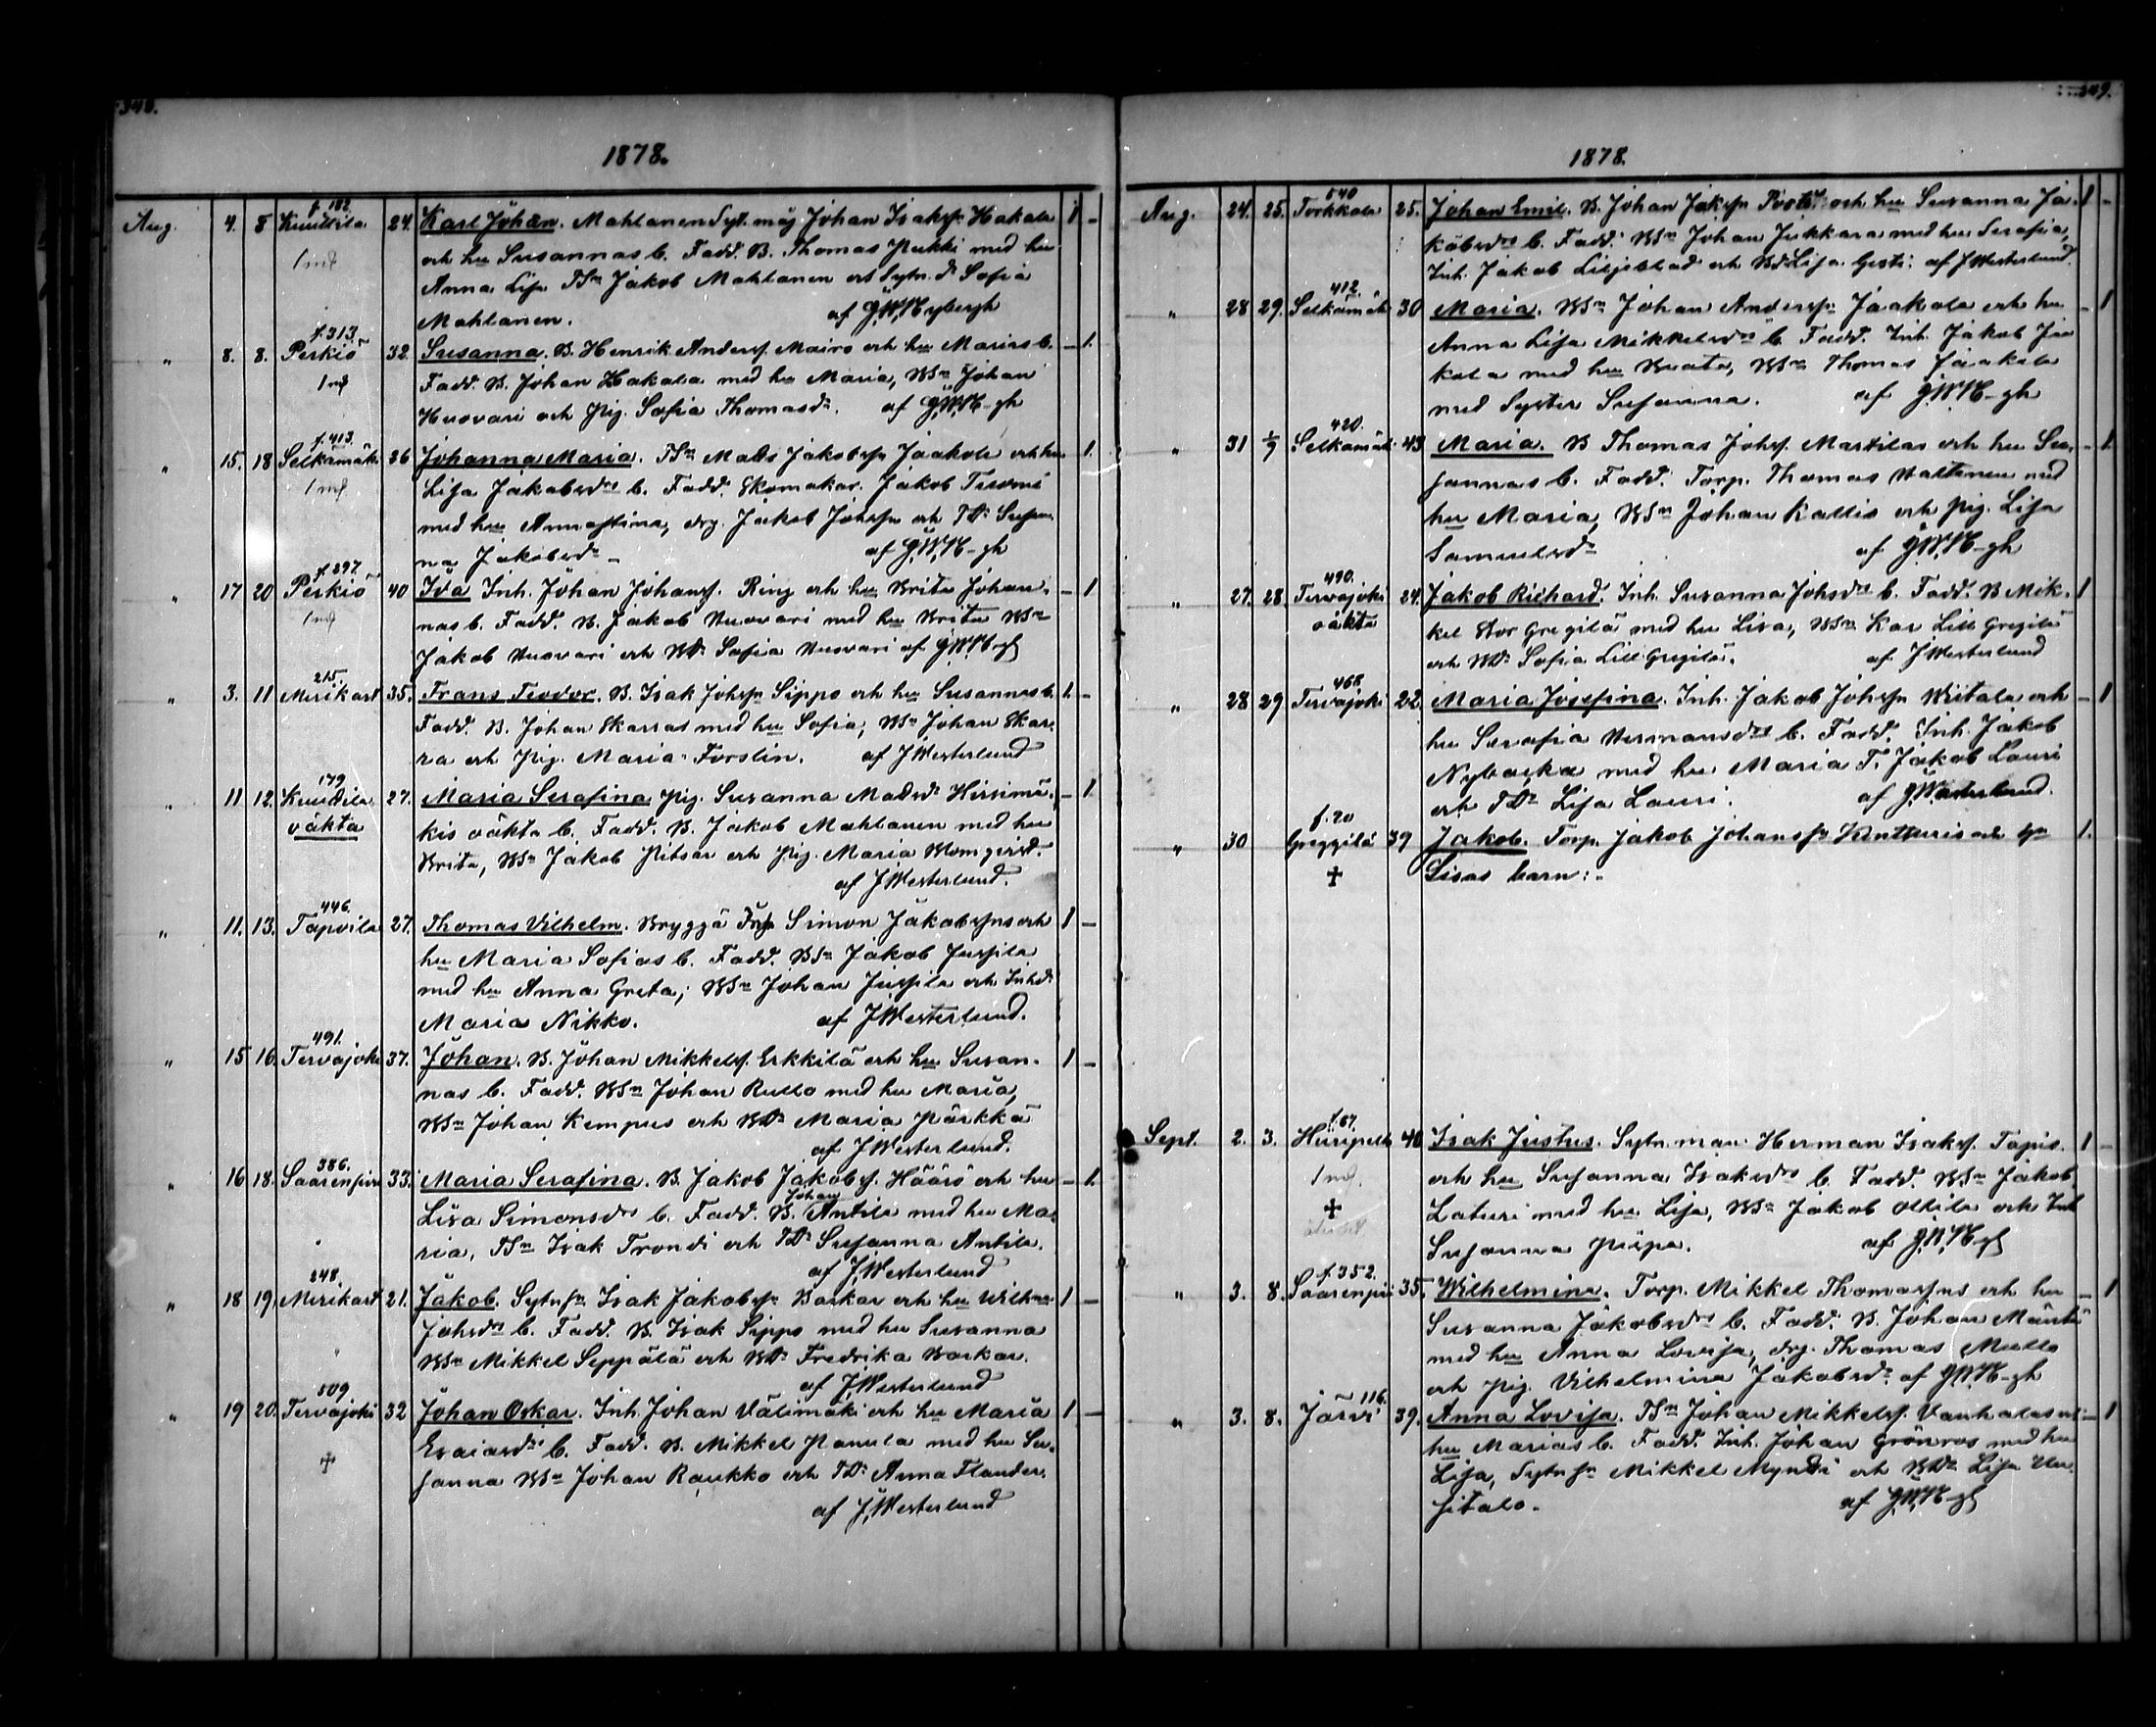 348.
1878.
f. 182.
Aug. 4. 8 Knuttila 24. Karl Johan. Mahlanen Syt. måg Johan Isaksn Hakala 1 -
1 nd och hu Susannas b. Fadd. B. Thomas Pukki med hu
Anna Lisa TSn Jakob Mahlanen och Sytn. dr Sofia
Mahlanen. af G.W.Hybergh
f. 313.
" 8. 8. Perkiö 32. Susanna. B. Henrik Andersf. Mairo och hu Marias b. - 1.
1 nd Fadd. B. Johan Hakala med hu Maria, BSn Johan
Huovari och pig. Sofia Thomasdr. af G.W.H-gh
f. 413.
" 15. 18 Selkämäki 36 Johanna Maria. TSn Mats Jakobsn Jaakola och hu - 1.
1 nd. Lisa Jakobsdrs b. Fadd. Skomakar. Jakob Tuomi
med hu Anna Stina, drg. Jakob Johsn och TDr Susan
na Jakobsdr - af G.W.H-gh
f. 297.
" 17 20 Perkiö 40 Ida Inh. Johan Johansf. Ring och hu Brita Johan- - 1
1 nd nas b. Fadd. B. Jakob Huovari med hu Brita BSn
Jakob Huovari och BDr Sofia Huovari af G.W.H-gh
215.
" 3. 11 Merikart 35. Frans Teodor. B. Isak Johsn Sippo och hu Susannas b. 1. -
Fadd. B. Johan Skarras med hu Sofia, BSn Johan Skar-
ra och pig. Maria Forslin. af J Westerlund
179
" 11 12. Knuttila 27. Maria Serafina pig. Susanna Matsdr Hirsimä- - 1.
oäkta kis oäkta b. Fadd. B. Jakob Mahlanen med hu
Brita, BSn Jakob Pitsar och pig. Maria Blomqvist.
af J Westerlund.
446.
" 11. 13. Tapoila 27. Thomas Vilhelm. Bryggä Inh Simon Jakobsns och 1 -
hu Maria Sofias b. Fadd. BSn Jakob Jussila
med hu Anna Greta; BSn Johan Jussila och Inhdr
Maria Nikko. af J Westerlund.
491.
" 15 16. Tervajoki 37. Johan. B. Johan Mikkelsf. Erkkilä och hu Susan- 1 -
nas b. Fadd. BSn Johan Rullo med hu Maria,
BSn Johan Kempus och BDr Maria Pärkkä
af J Westerlund.
386.
" 16 18. Saarenpää 33. Maria Serafina. B. Jakob Jakobsf. Häärö och hu - 1.
Johan
Lisa Simonsdrs b. Fadd. B. Antila med hu Ma-
ria, TSn Isak Trondi och TDr Susanna Antila.
af J Westerlund
248.
" 18 19. Merikart 21. Jakob. Sytnsn Isak Jakobsn Backar och hu Wilhma 1 -
Johsdrs b. Fadd. B. Isak Sippo med hu Susanna
BSn Mikkel Seppälä och BDr Fredrika Backar.
af J Westerlund
509.
" 19 20. Tervajoki 32 Johan Oskar. Inh. Johan Välimäki och hu Maria 1 -
+ Esaiasdrs b. Fadd. B. Mikkel Panula med hu Su-
sanna BSn Johan Raukko och TDr Anna Flander.
af J Westerlund
349.
1878.
540
Aug. 24. 25. Torkkola 25. Johan Emil. B. Johan Jaksn och hu Susanna Ja- 1 -
kobsdrs b. Fadd. BSn Johan Jukkara med hu Serafia,
Inh. Jakob Liljeblad och BdrLisa Gesti. af J Westerlund.
412.
" 28 29. Selkämäki 30 Maria. BSn Johan Andersn Jaakola och hu - 1
Anna Lisa Mikkelsdrs b. Fadd. Inh. Jakob Jaa
kola med hu Beata, BSn Thomas Jaakola
med Syster Susanna. af G.W.H-gh
420.
" 31 1/9 Selkämäki 43 Maria. B Thomas Johsf. Martilas och hu Su- - 1.
sannas b. Fadd. Torp. Thomas Valtanen med
hu Maria, BSn Johan Kallis och pig. Lisa
Samuelsdr af G.W.H-gh
490.
" 27. 28. Tervajoki 24. Jakob Richard. Inh. Susanna Johsdrs b. Fadd. B Mik- 1
oäkta kel Stor Gregilä med hu Lisa, BSn Kar Lill Gregilä
och BDr Sofia Lill Gregilä. af J Westerlund
468.
" 28 29 Tervajoki 22. Maria Josefina. Inh. Jakob Johsn Witala och - 1
hu Serafia Hermansdrs b. Fadd. Inh. Jakob
Nybacka med hu Maria T. Jakob Lauri
och TDr Lisa Lauri. af J Westerlund.
f. 20
" 30 Greggilä 39 Jakob. Torp. Jakob Johansn Kintturis och hu 1.
+ Lisas barn:-
f. 67.
Sept. 2. 3. Huripelto 40 Isak Justus. Sytn. man Herman Isaksf. Tapis. 1 -
1 nd. och hu Susanna Isaksdrs b. Fadd. BSn Jakob
+ Laturi med hu Lisa, BSn Jakob Ollila och Inh
Susanna Piispa. af G.W.H-gh
f. 352.
" 3. 8. Saarenpää 35. Wilhelmina. Torp. Mikkel Thomasfns och hu - 1
Susanna Jakobsdrs b. Fadd. B. Johan Mäntä
med hu Anna Lovisa, drg. Thomas Mullo
och pig. Vilhelmina Jakobsdr. af G.W.H-gh
116.
" 3. 8. Järvi 39. Anna Lovisa. TSn Johan Mikkelsf. Vanhalas och - 1
hu Marias b. Fadd. Inh. Johan Grönros med hu
Lisa, Sytnsn Mikkel Myndi och BDr Lisa Uu-
sitalo. af G.W.H-gh